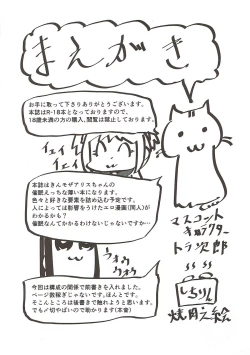 まえがき
お手に取って下さりありがとうございます。
本誌はR-18本となっておりますので、
18歳未満の方の購入、閲覧は禁止しております。
イェイ
イェイ
本誌はきんモザアリスちゃんの
催眠えっちな薄い本になります。
色々と好きな要素を詰め込む予定です。
人によっては影響をうけたエロ漫画(同人)が
わかるかも?
催眠なんてかかるわけないじゃないですかー…
マスコット
キャラクター
トラ次郎
しちりん
今回は構成の関係で前書きを入れました。
ページ数稼ぎじゃないです。ほんとです。
そこんところは後書きで触れようと思います。
でも〆切やばいので助かります(本音)